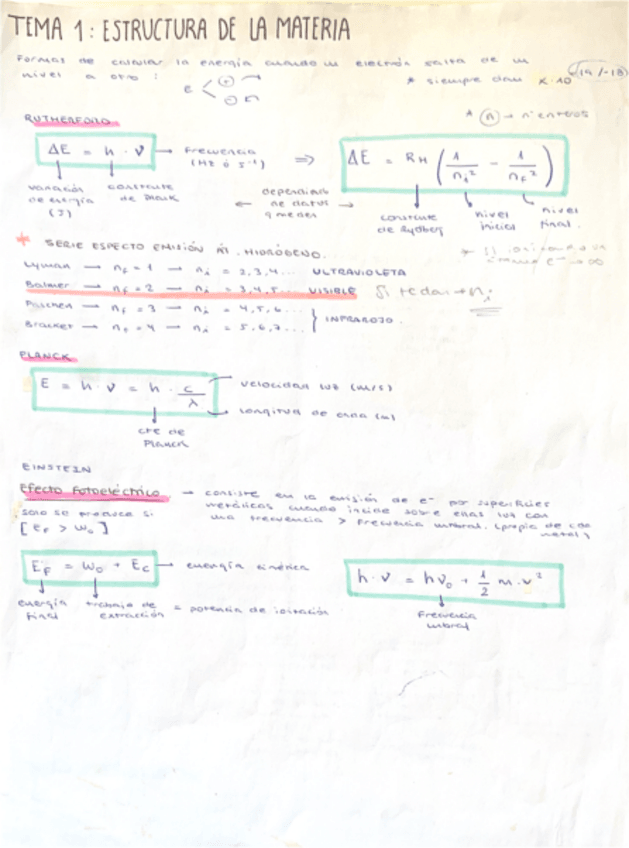 TEMA 1: ESTRUCTURA DE LA MATERIA
Formas de calcular la energía cuando un electrón salta de un
nivel a otro :
* siempre dan x·10 (-19 / -18)
E < ⊕
⊖
* (n) → nº enteros
RUTHERFORD
ΔE = h · ν → Frecuencia
(Hz ó s⁻¹)
⇒
ΔE = RH (1/ni² - 1/nf²)
variación
de energía
(J)
constante
de Planck
← dependiendo
de datos
q me den →
constante
de Rydberg
nivel
inicial
nivel
final.
* SERIE ESPECTO EMISIÓN AT. HIDRÓGENO.
Lyman → nf = 1 → ni = 2,3,4... ULTRAVIOLETA
Balmer → nf = 2 → ni = 3,4,5... VISIBLE
Si te dan → ni
Paschen → nf = 3 → ni = 4,5,6...
Bracket → nf = 4 → ni = 5,6,7... } INFRAROJO.
PLANCK
E = h · ν = h · c/λ
velocidad luz (m/s)
longitud de onda (m)
cte de
Planck
EINSTEIN
Efecto Fotoeléctrico → consiste en la emisión de e⁻ por superficies
metálicas cuando incide sobre ellas luz con
una frecuencia > frecuencia umbral. (propia de cada
metal)
solo se produce si
[EF > Wo]
EF = Wo + Ec → energía cinética
energía
final
trabajo de
extracción = potencia de ionización
h · ν = hνo + 1/2 m · v²
Frecuencia
umbral